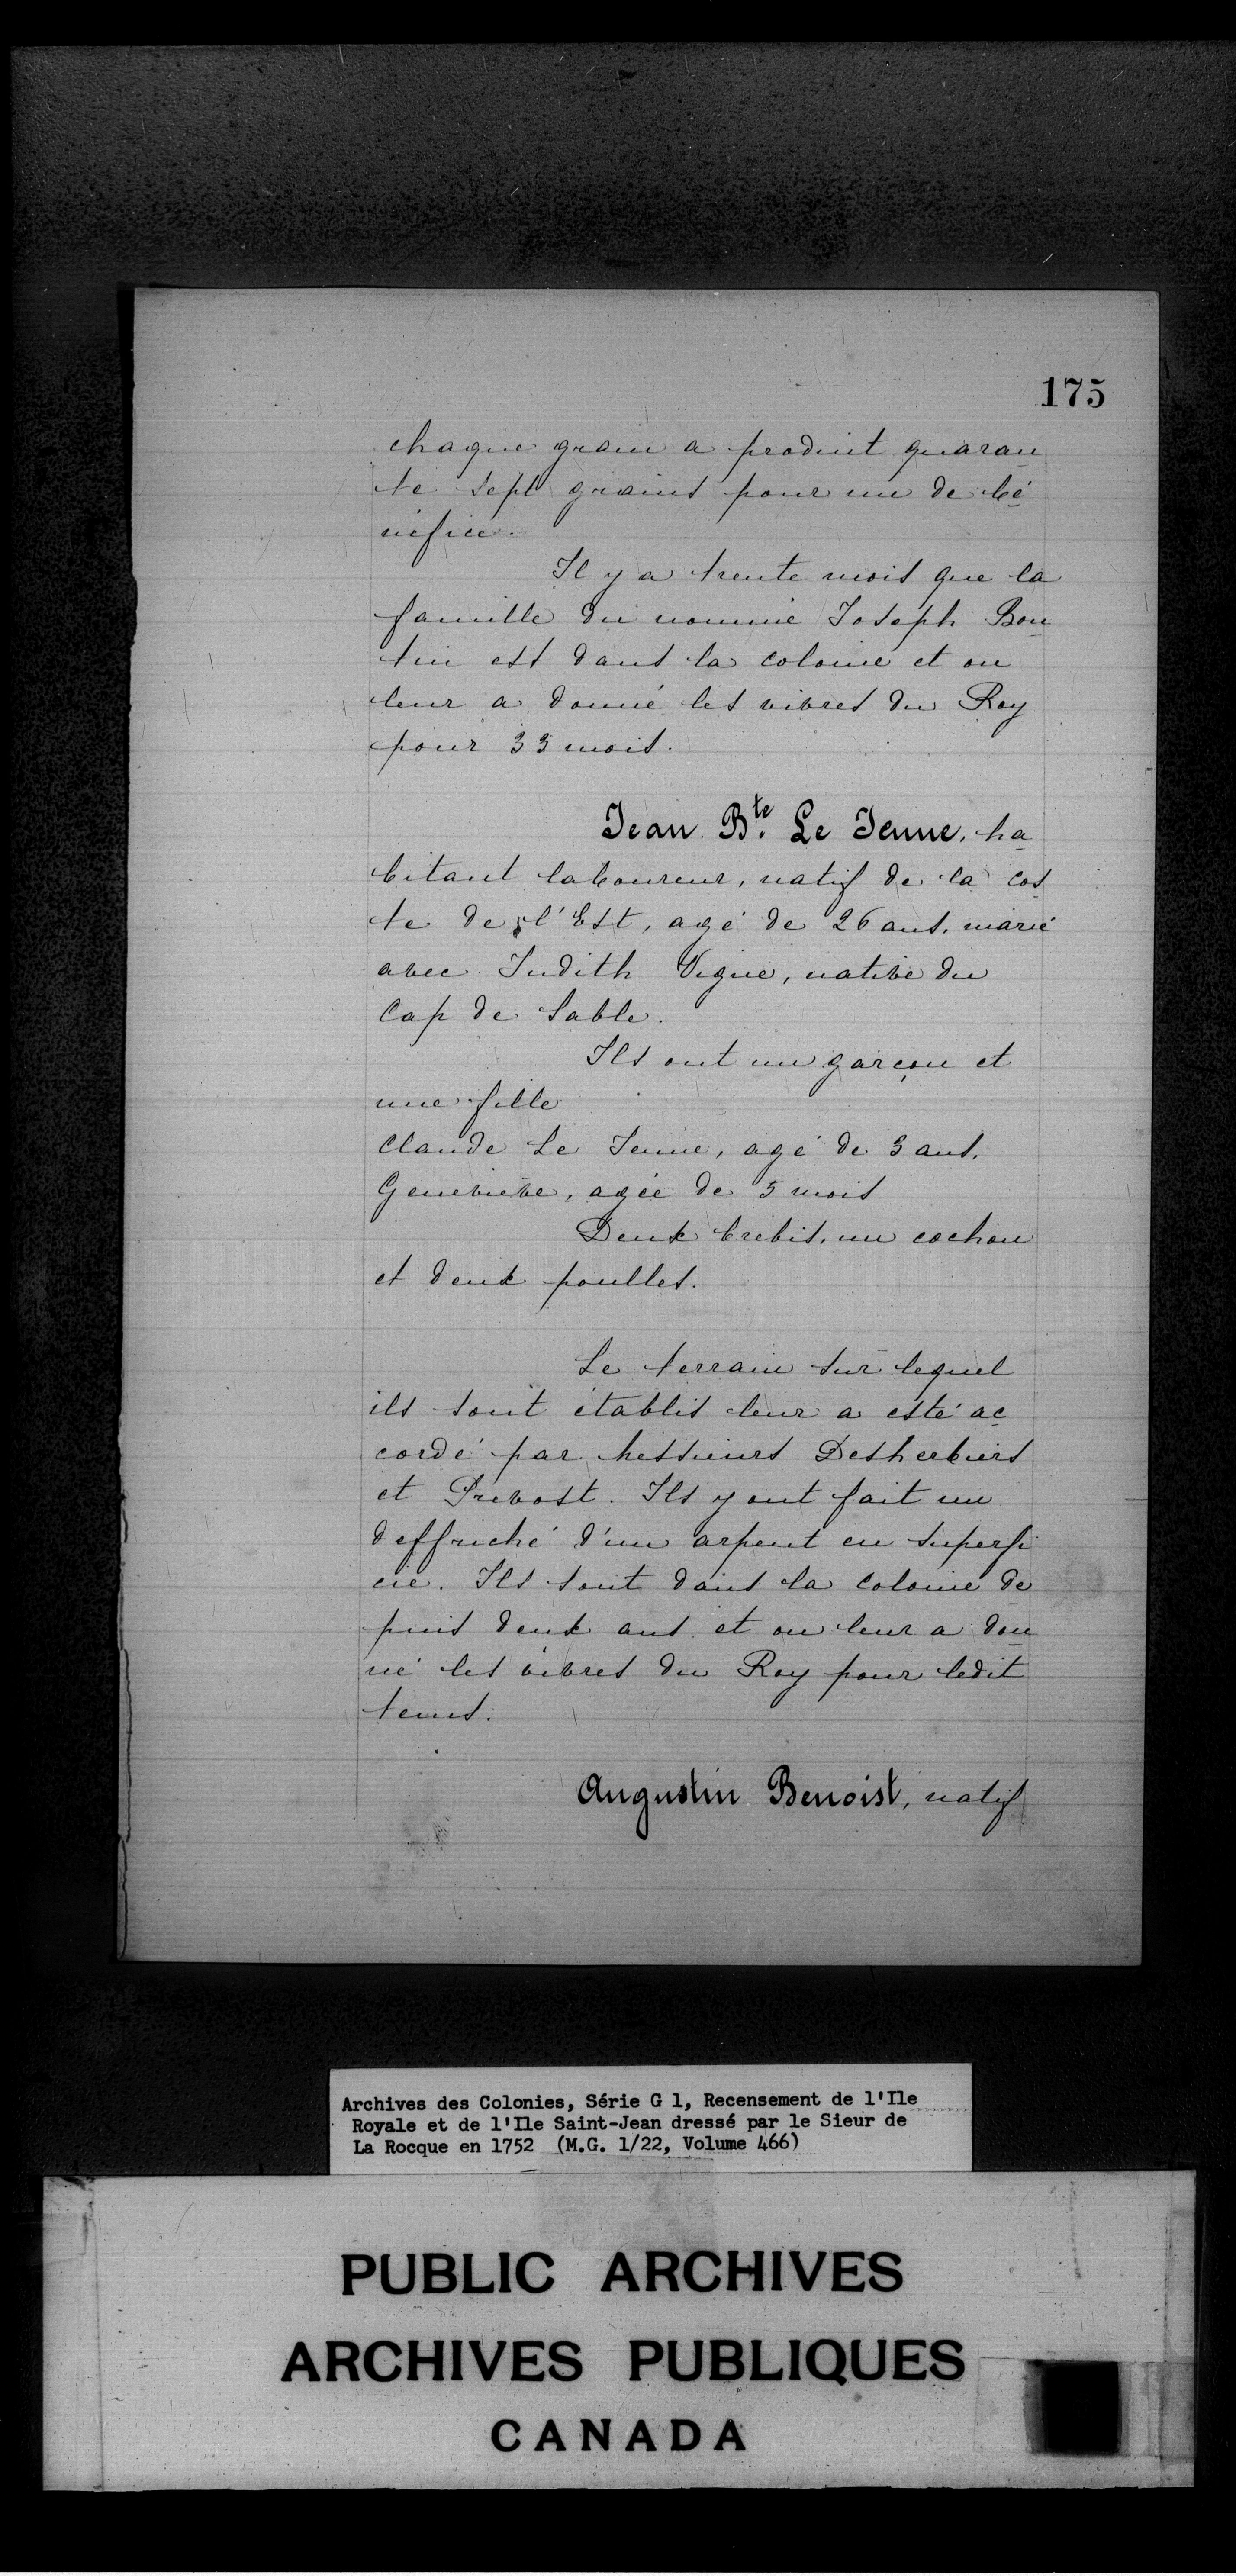 175
chaque grain a produit quaran
te sept grains pour un de bé
néfice.
Il y a trente mois que la
famille du nommé Joseph Bou
tin est dans la colonie et on
leur a donné les vivres du Roy
pour 33 mois.
Jean Bte. Le Jeune, ha
bitant laboureur, natif de la cos
te de l'Est, agé de 26 ans, marié
avec Judith Vigne, native du
Cap de Sable.
Ils ont un garçon et
une fille
Claude Le Jeune, agé de 3 ans.
Geneviève, agée de 5 mois
Deux brebis, un cochon
et deux poulles.
Le terrain sur lequel
ils sont établis leur a esté ac
cordé par Messieurs Desherbiers
et Prevost. Ils y ont fait un
deffriché d'un arpent en superfi
cie. Ils sont dans la colonie de
puis deux ans et on leur a don
né les vivres du Roy pour ledit
tems.
Augustin Benoist, natif
Archives des Colonies, Série G 1, Recensement de l'Ile
Royale et de l'Ile Saint-Jean dressé par le Sieur de
La Rocque en 1752 (M.G. 1/22, Volume 466)
PUBLIC ARCHIVES
ARCHIVES PUBLIQUES
CANADA